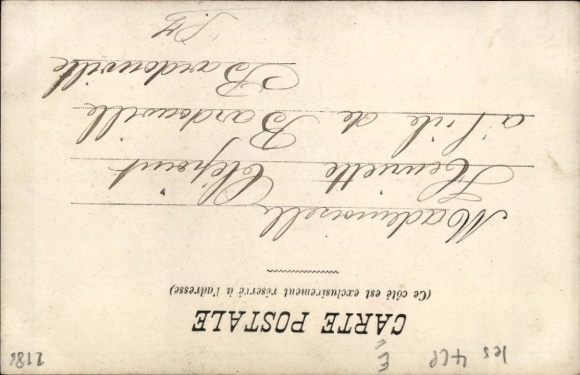 les 4 CP
E
2186
CARTE POSTALE
(Ce côté est exclusivement réservé à l'adresse)
Mademoiselle
Henriette
à l'île de Bardouville
Bardouville
S. If